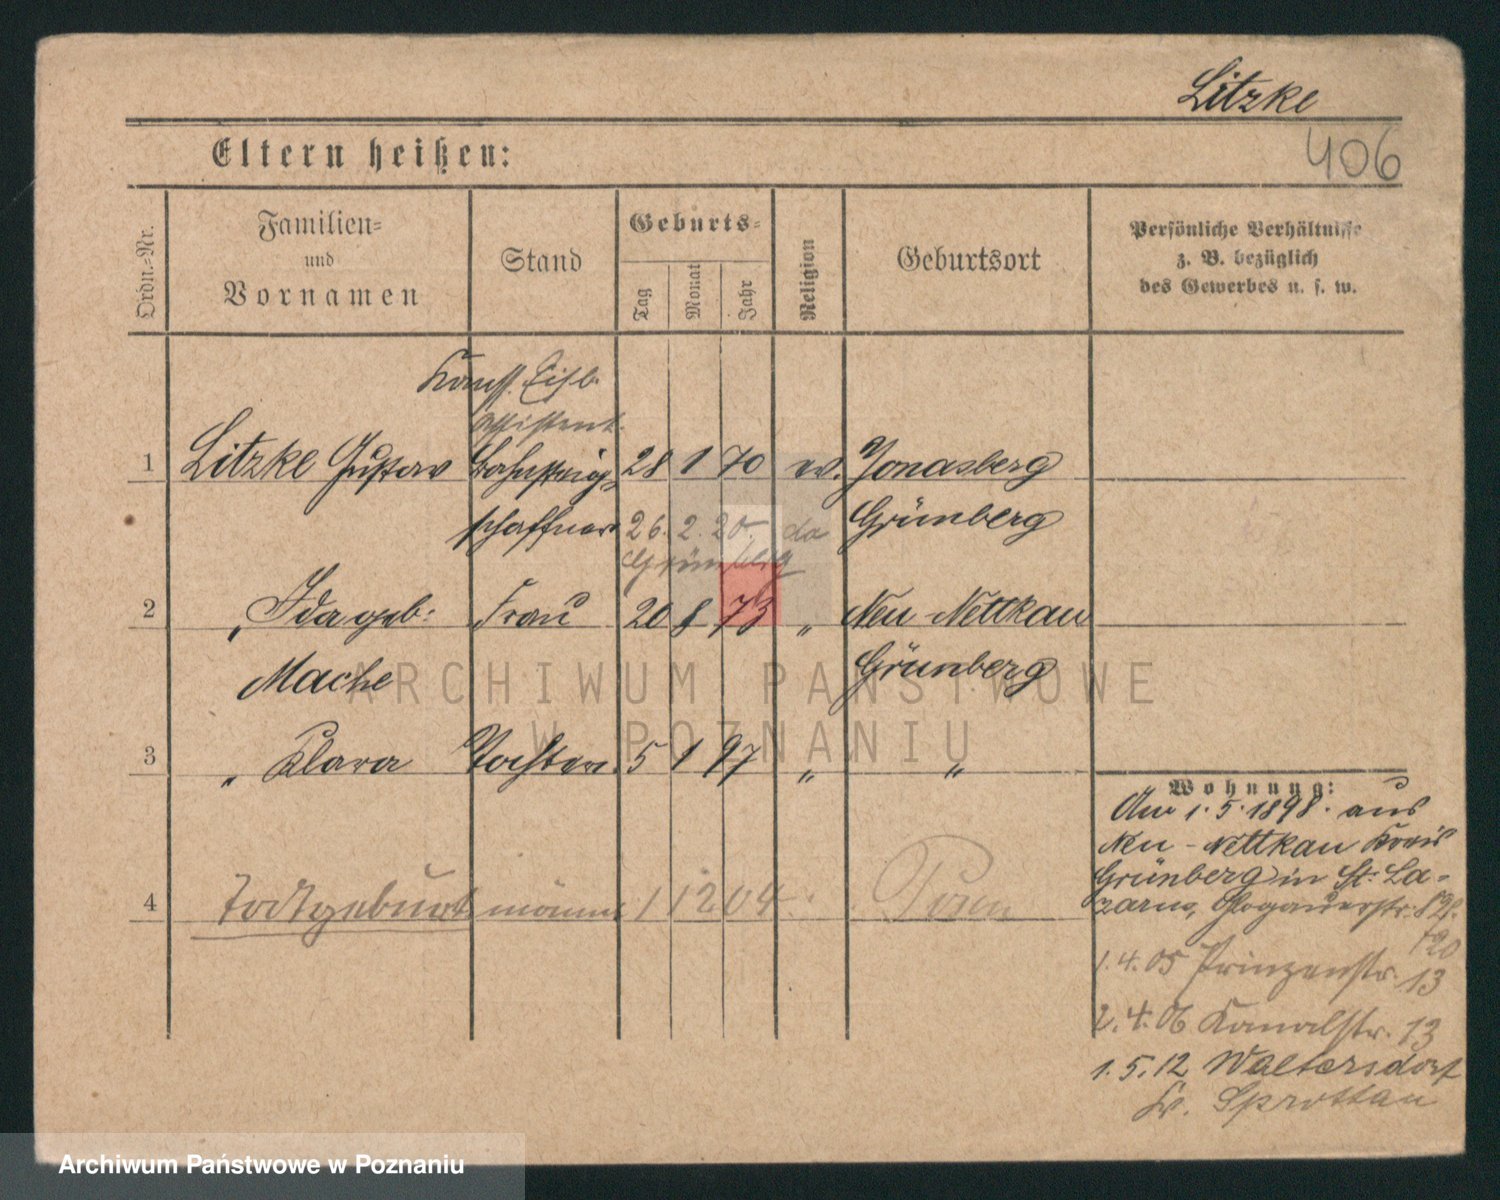 Litzke
406
Eltern heißen:
Ordn.=Nr.
Familien=
und
Vornamen
Stand
Geburts=
Tag
Monat
Jahr
Religion
Geburtsort
Persönliche Verhältnisse
z. B. bezüglich
des Gewerbes u. s. w.
Eisb.
assistent
1 Litzke Gustav Bahnsteig= 28 1 70 ev. Jonasberg
schaffner 26. 2. 20. Grünberg
Grünberg
2 " Ida geb: Frau 20 8 73 " Neu-Nettkau
Mache Grünberg
3 " Klara Tochter 5 1 97 " "
Wohnung:
Am 1.5.1898. aus
Neu-Nettkau Kreis
Grünberg in St. La-
zarus, Glogauerstr.
4 Todtgeburt männl 1 12 04 Posen
1.4.05 Prinzenstr. 13
2.4.06 Kanalstr. 13
1.5.12 Waltersdorf
Kr. Sprottau
ARCHIWUM PAŃSTWOWE
W POZNANIU
Archiwum Państwowe w Poznaniu